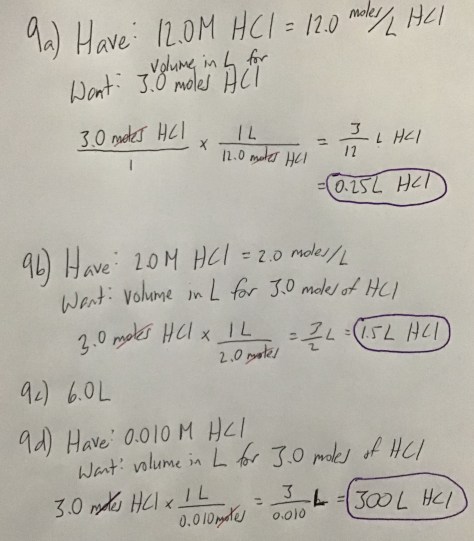 9a) Have: 12.0M HCl = 12.0 moles/L HCl
volume in L for
Want: 3.0 moles HCl
3.0 moles HCl / 1 × 1 L / 12.0 moles HCl = 3/12 L HCl
= 0.25L HCl
9b) Have: 2.0M HCl = 2.0 moles/L
Want: volume in L for 3.0 moles of HCl
3.0 moles HCl × 1 L / 2.0 moles = 3/2 L = 1.5L HCl
9c) 6.0L
9d) Have: 0.010 M HCl
Want: volume in L for 3.0 moles of HCl
3.0 moles HCl × 1 L / 0.010 moles = 3 / 0.010 L = 300L HCl